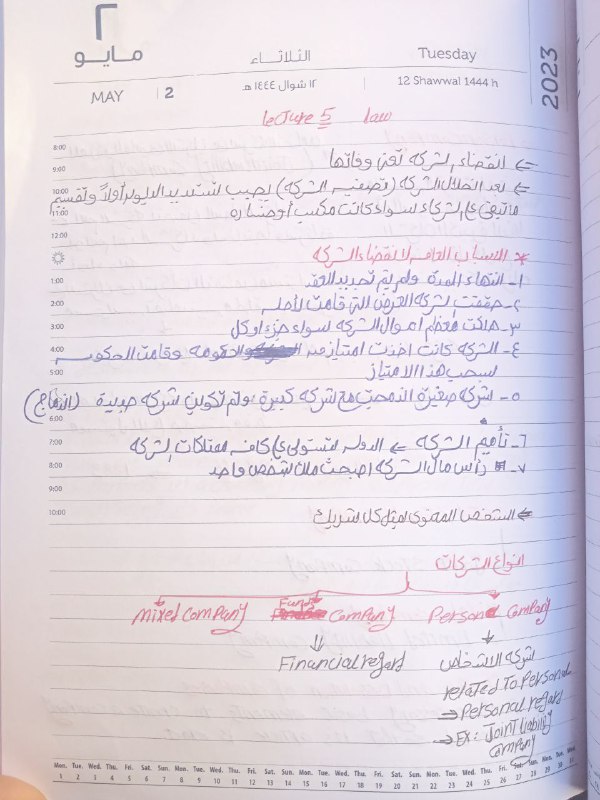 ٢
مايو
الثلاثاء
Tuesday
2023
MAY 2
١٢ شوال ١٤٤٤ هـ
12 Shawwal 1444 h
lecture 5 law
8:00
⇐ انقضاء الشركة تعني وفاتها
9:00
10:00
⇐ بعد انحلال الشركة (تصفية الشركة) يجب تسديد الديون أولاً وتقسيم
11:00
ما تبقى على الشركاء سواء كانت مكسب أو خسارة
12:00
* الأسباب العامة لانقضاء الشركة
1:00
١- انتهاء المدة ولم يتم تجديد العقد
2:00
٢- حققت الشركة الغرض التي قامت لأجله
3:00
٣- هلكت معظم اموال الشركة سواء جزء او كل
4:00
٤- الشركة كانت اخذت امتياز من الحكومة وقامت الحكومة
5:00
بسحب هذا الامتياز
٥- شركة صغيرة اندمجت مع شركة كبيرة ولم تكوين شركة جديدة (اندماج)
6:00
7:00
٦- تأميم الشركة ⇐ الدولة تستولي على كافة ممتلكات الشركة
8:00
٧- رأس مال الشركة اصبحت ملك شخص واحد
9:00
10:00
⇐ الشخص المعنوي يمثل كل شريك
انواع الشركات
Mixed Company
Fund Company
Person Company
⇓
Financial regard
شركة الاشخاص
related To Personal
⇒ Personal regard
⇒ Ex: Joint liability
Company
Mon. Tue. Wed. Thu. Fri. Sat. Sun. Mon. Tue. Wed. Thu. Fri. Sat. Sun. Mon. Tue. Wed. Thu. Fri. Sat. Sun. Mon. Tue. Wed. Thu. Fri. Sat. Sun. Mon. Tue. Wed.
1 2 3 4 5 6 7 8 9 10 11 12 13 14 15 16 17 18 19 20 21 22 23 24 25 26 27 28 29 30 31